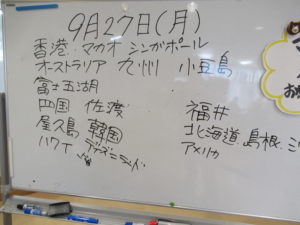 9月27日(月)
香港・マカオ シンガポール
オーストラリア 九州 小豆島
富士五湖
四国 佐渡 福井
屋久島 韓国 北海道 島根
ハワイ ディズニーランド アメリカ